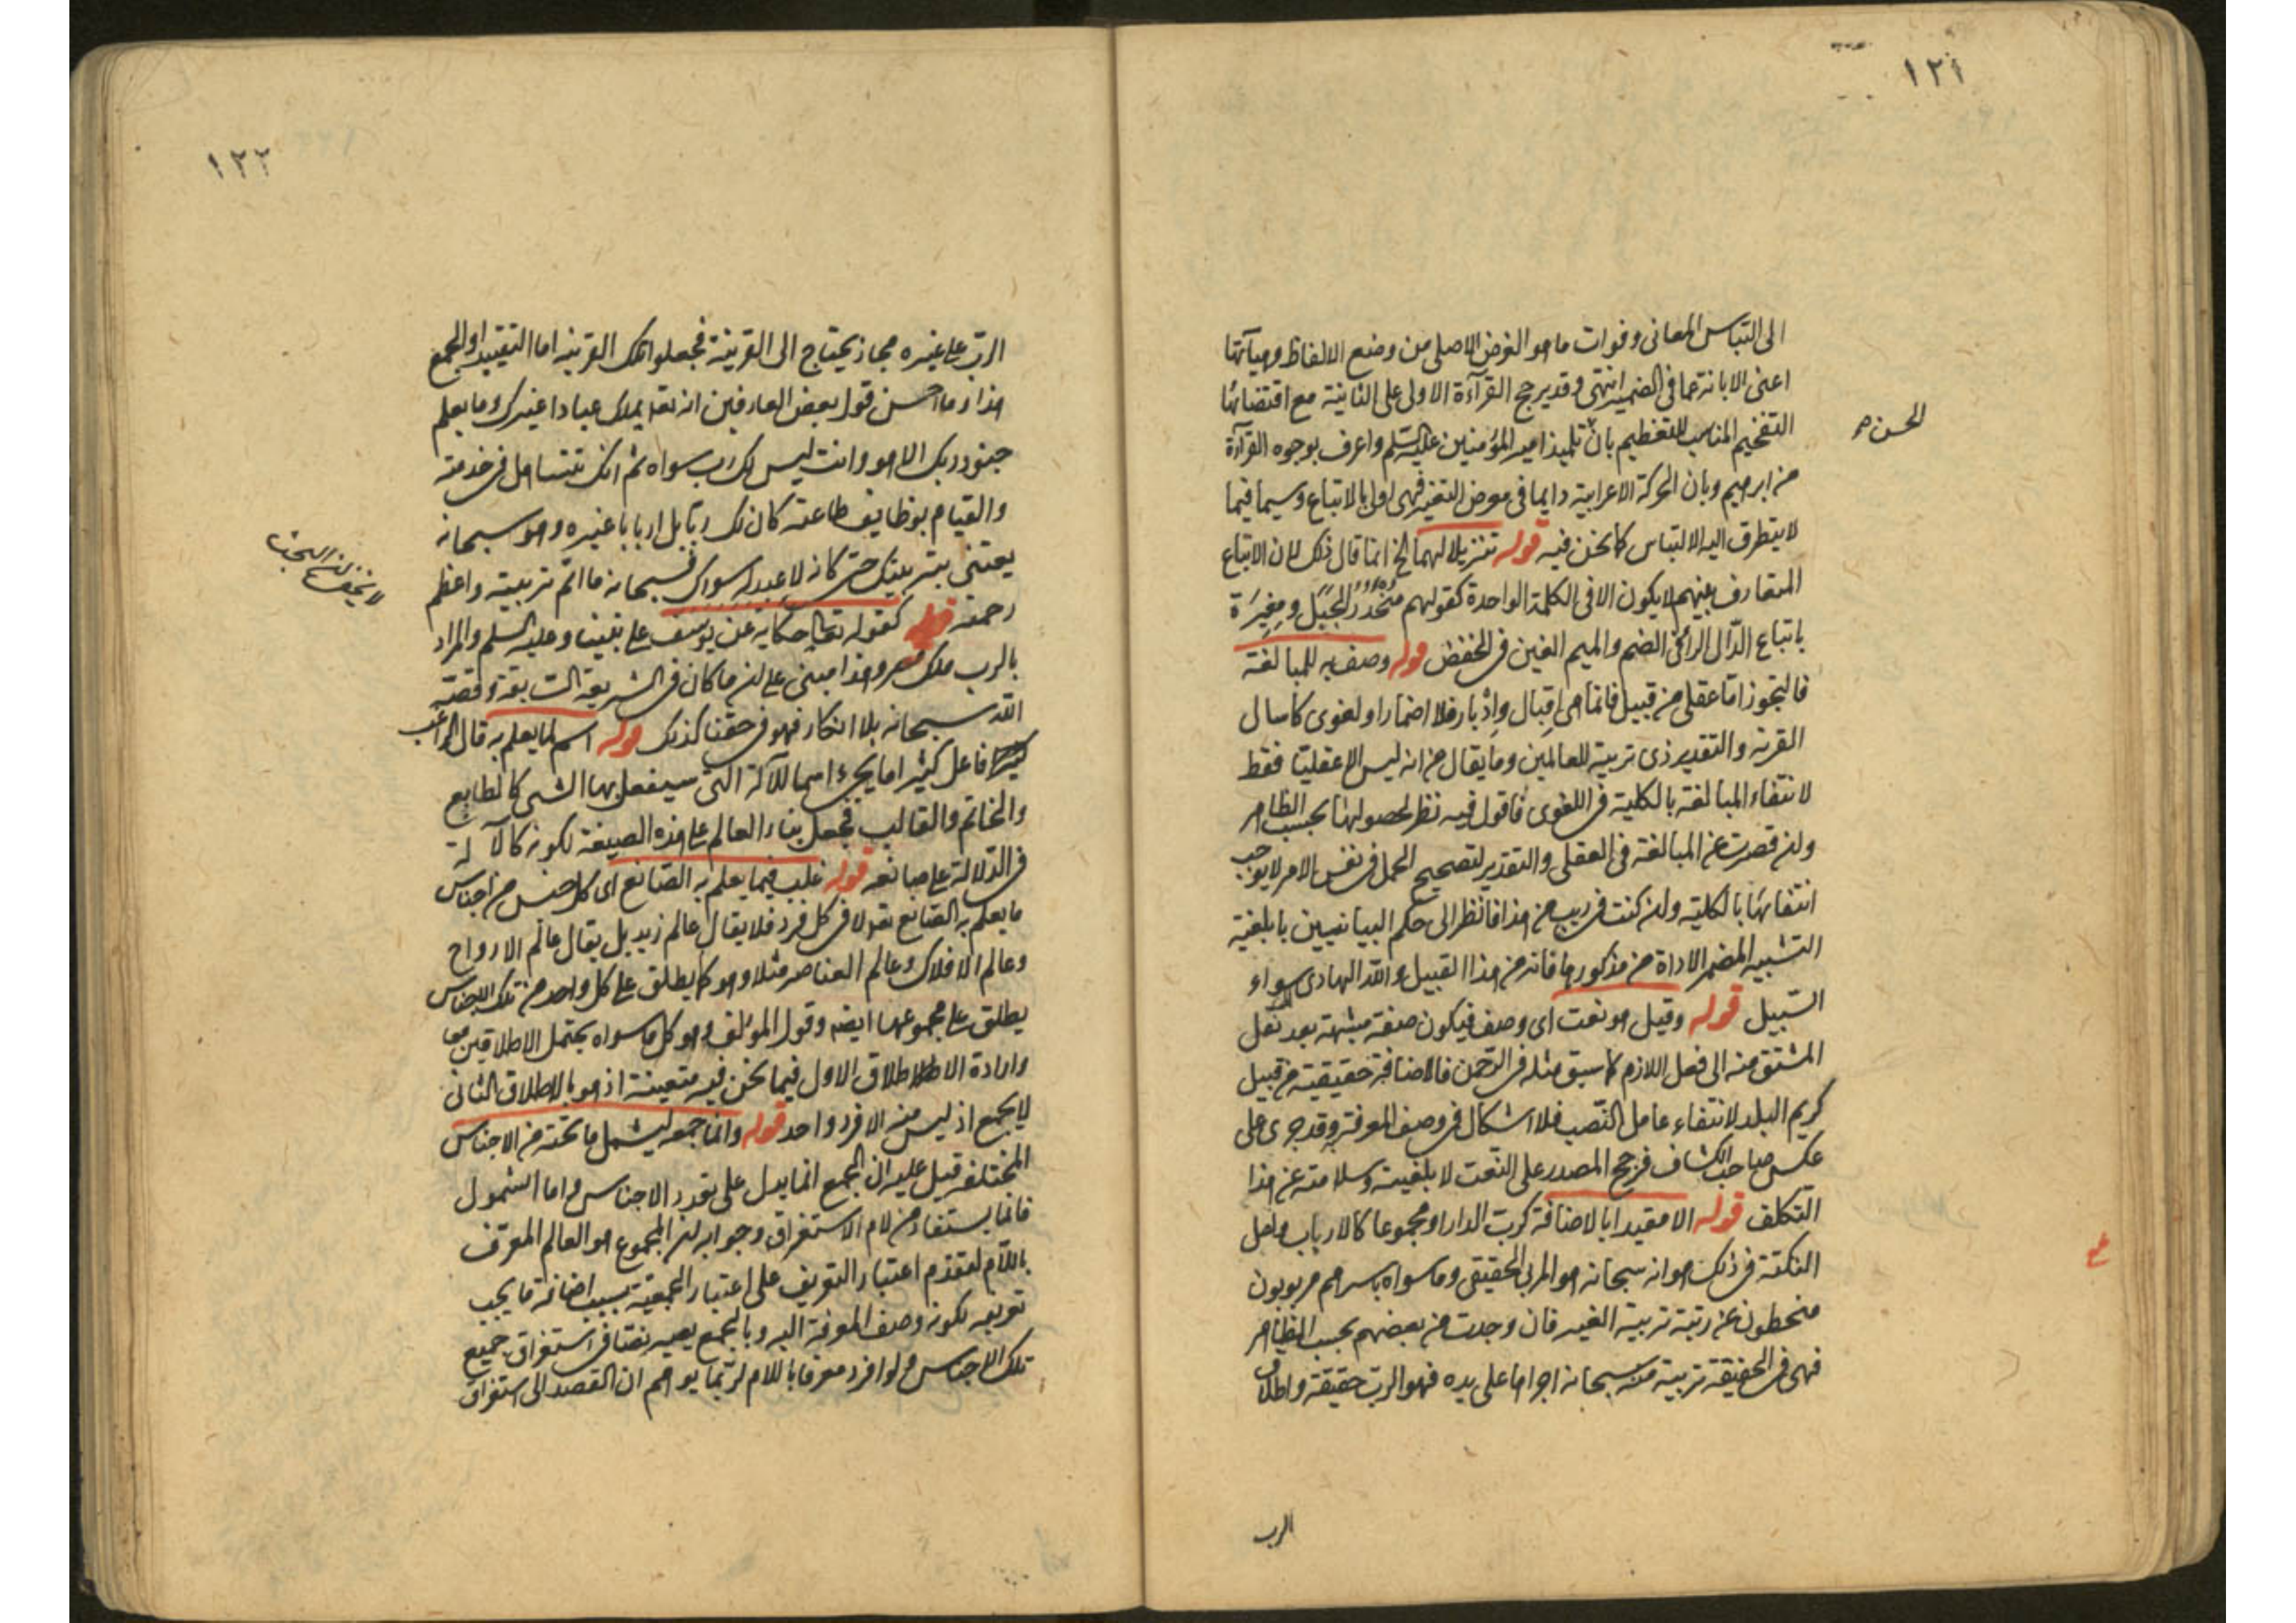 ١٢١
الى التباس المعانى وفوات ما هو الغرض الاصلى من وضع الالفاظ وهيآتها
اعنى الابانة عما فى الضمير انتهى وقد يرجح القرآءة الاولى على الثانية مع اقتضائها
التفخيم المناسب للتعظيم بان تلميذ امير المؤمنين عليه السلم واعرف بوجوه القرآءة
الحسن صح
من ابرهيم وبان الحركة الاعرابية دايما فى معرض التغير فهى اولى بالاتباع وسيما فيما
لا يتطرق اليه الالتباس كما نحن فيه قوله تنزيلا لهما الخ انما قال ذلك لان الاتباع
المتعارف بينهم لا يكون الا فى الكلمة الواحدة كقولهم منحدر الجبل ومغيرة
باتباع الدال الرا فى الضم والميم الغين فى الخفض قوله وصف به للمبالغة
فالتجوز اما عقلى من قبيل فانما هى اقبال وادبار فلا اضمار او لغوى كاسال
القرية والتقدير ذى تربية للعالمين وما يقال من انه ليس الا عقليا فقط
لانتفاء المبالغة بالكلية فى اللغوى فاقول فيه نظر لحصولها بحسب الظاهر
ولئن قصرت عن المبالغة فى العقلى والتقدير لتصحيح الحمل فى نفس الامر لا يوجب
انتفائها بالكلية ولئن كنت فى ريب من هذا فانظر الى حكم البيانيين بابلغية
التشبيه المضمر الاداة من مذكورها فانه من هذا القبيل والله الهادى الى سواء
السبيل قوله وقيل هو نعت اى وصف فيكون صفة مشبهة بعد نقل
المشتق منه الى فعل اللازم كما سبق مثله فى الرحمن فالاضافة حقيقية من قبيل
كريم البلد لانتفاء عامل النصب فلا اشكال فى وصف المعرفة به وقد جرى على
عكس صاحب الكشاف فرجح المصدر على النعت لابلغيته وسلامته عن هذا
التكلف قوله الا مقيدا بالاضافة كرب الدار او مجموعا كالارباب ولعل
النكتة فى ذلك هو انه سبحانه هو المربى الحقيقى وما سواه باسرهم مربوبون
منحطون عن رتبة تربية الغير فان وجدت من بعضهم بحسب الظاهر
فهى فى الحقيقة تربية منه سبحانه اجراها على يده فهو الرب حقيقة واطلاق
الرب
١٢٢
الرب على غيره مجاز يحتاج الى القرينة فجعلوا تلك القرينه اما التقييد او الجمع
هذا وما احسن قول بعض العارفين انه تعالى يملك عبادا غيرك وما يعلم
جنود ربك الا هو وانت ليس لك رب سواه ثم انك تتساهل فى خدمته
والقيام بوظايف طاعته كان لك ربا بل اربابا غيره وهو سبحانه
يعتنى بتربيتك حتى كانه لا عبد له سواك فسبحانه ما اتم تربيته واعظم
لا يخفى لطف البحث
رحمته قوله كقوله تعالى حكاية عن يوسف على نبينا وعليه السلم والمراد
بالرب ملك مصر وهذا مبنى على ان ما كان فى الشريعة السابقة وقصته
الله سبحانه بلا انكار فهو فى حقنا كذلك قوله اسم لما يعلم به قال الراغب
فاعل كثيرا ما يجئ اسما للآلة التى سيفعل بها الشى كالطابع
والخاتم والقالب فجعل بناء العالم على هذه الصيغة لكونه كالآلة
فى الدلالة على صانعه قوله غلب فيما يعلم به الصانع اى كل جنس من اجناس
ما يعلم به الصانع تعالى لا فى كل فرد فلا يقال عالم زيد بل يقال عالم الارواح
وعالم الافلاك وعالم العناصر مثلا وهو كما يطلق على كل واحد من تلك الاجناس
يطلق على مجموعها ايضا وقول المؤلف وهو كل ما سواه يحتمل الاطلاقين معا
وارادة الاطلاق الاول فيما نحن فيه متعينة اذ هو بالاطلاق الثانى
لا يجمع اذ ليس منه الا فرد واحد قوله وانما جمعه ليشمل ما تحته من الاجناس
المختلفة قيل عليه ان الجمع انما يدل على تعدد الاجناس واما الشمول
فانما يستفاد من لام الاستغراق وجوابه ان المجموع هو العالم المعرف
باللام لتقدم اعتبار التعريف على اعتبار الجمعية بسبب اضافة ما يجب
تعريفه لكونه وصف المعرفة اليه وبالجمع يصير نصا فى استغراق جميع
تلك الاجناس ولو افرد معرفا باللام لربما يوهم ان القصد الى استغراق